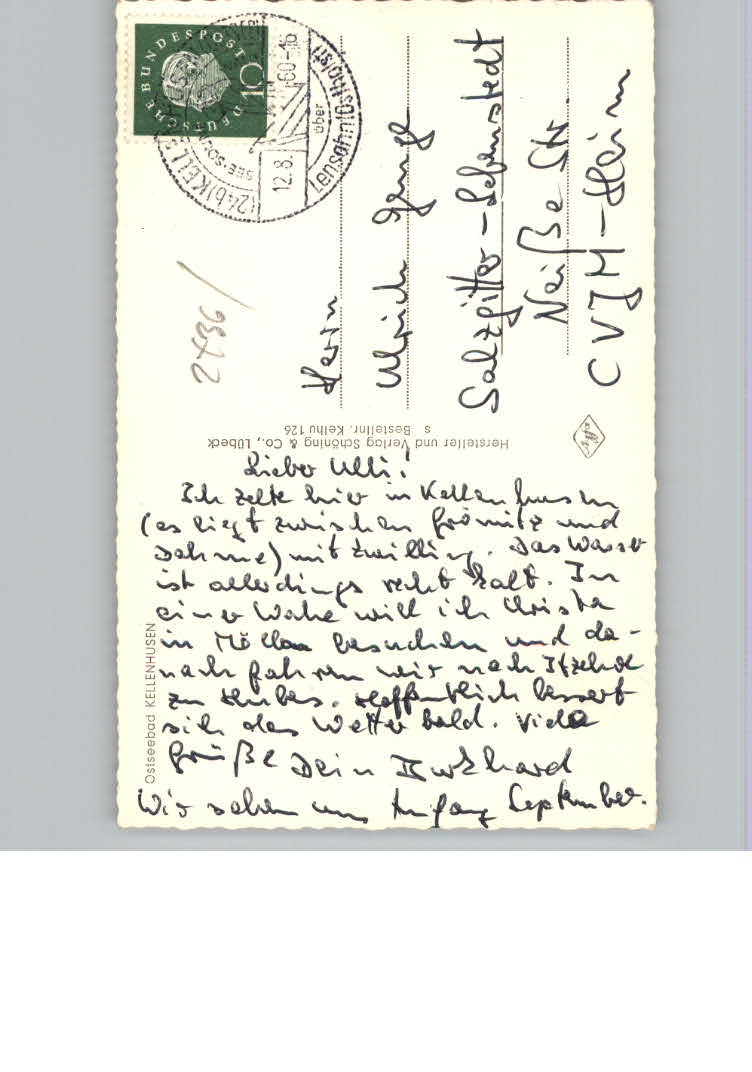 DEUTSCHE BUNDESPOST
10
12.8.60-16
über
Lensahn (Ostholst)
2436/
Herrn
Ulrich
Salzgitter-Lebenstedt
Neiße Str
CVJM-Heim
Hersteller und Verlag Schöning & Co., Lübeck
s Bestellnr. Kelhu 126
Ostseebad KELLENHUSEN
Lieber Ulli!
Ich zelte hier in Kellenhusen
(es liegt zwischen Grömitz und
Dahme) mit Zwilling. Das Wasser
ist allerdings recht kalt. In
einer Woche will ich Christa
in Mölln besuchen und da-
nach fahren wir nach Itzehoe
zu. Hoffentlich bessert
sich das Wetter bald. Viele
Grüße Dein Burkhard
Wir sehen uns Anfang September.